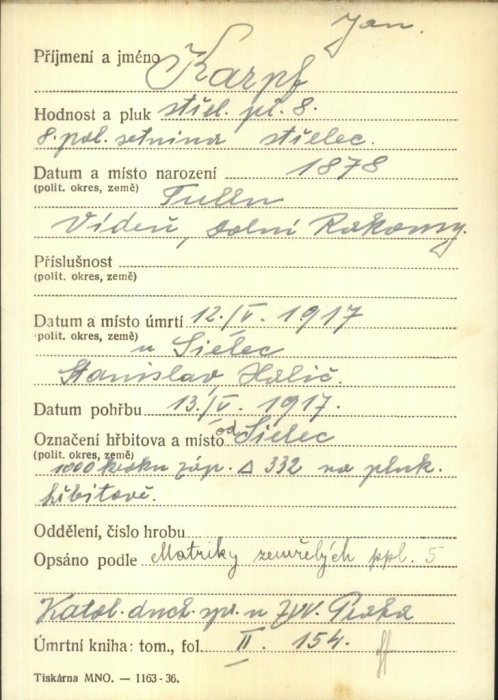 Jan.
Příjmení a jméno Karpf
Hodnost a pluk střel. pl. 8.
8. pol. setnina střelec.
Datum a místo narození 1878
(polit. okres, země) Tulln
Vídeň, dolní Rakousy.
Příslušnost
(polit. okres, země)
Datum a místo úmrtí 12./V. 1917
polit. okres, země) u Sielec
Stanislav, Halič.
Datum pohřbu 13./V. 1917.
Označení hřbitova a místo od Sielec
(polit. okres, země) 1000 kroků záp. Δ 332 na pluk.
hřbitově.
Oddělení, číslo hrobu
Opsáno podle Matriky zemřelých ppl. 5
Katol. duch. spr. u Praha
Úmrtní kniha: tom., fol. II. 154.
Tiskárna MNO. — 1163-36.